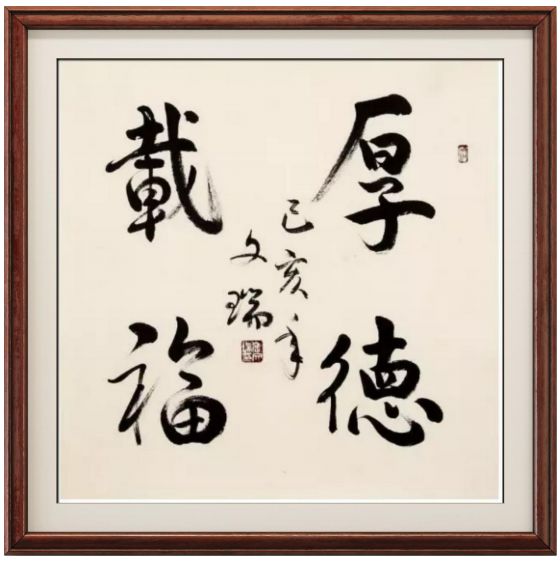 厚德
載福
己亥年
文瑞